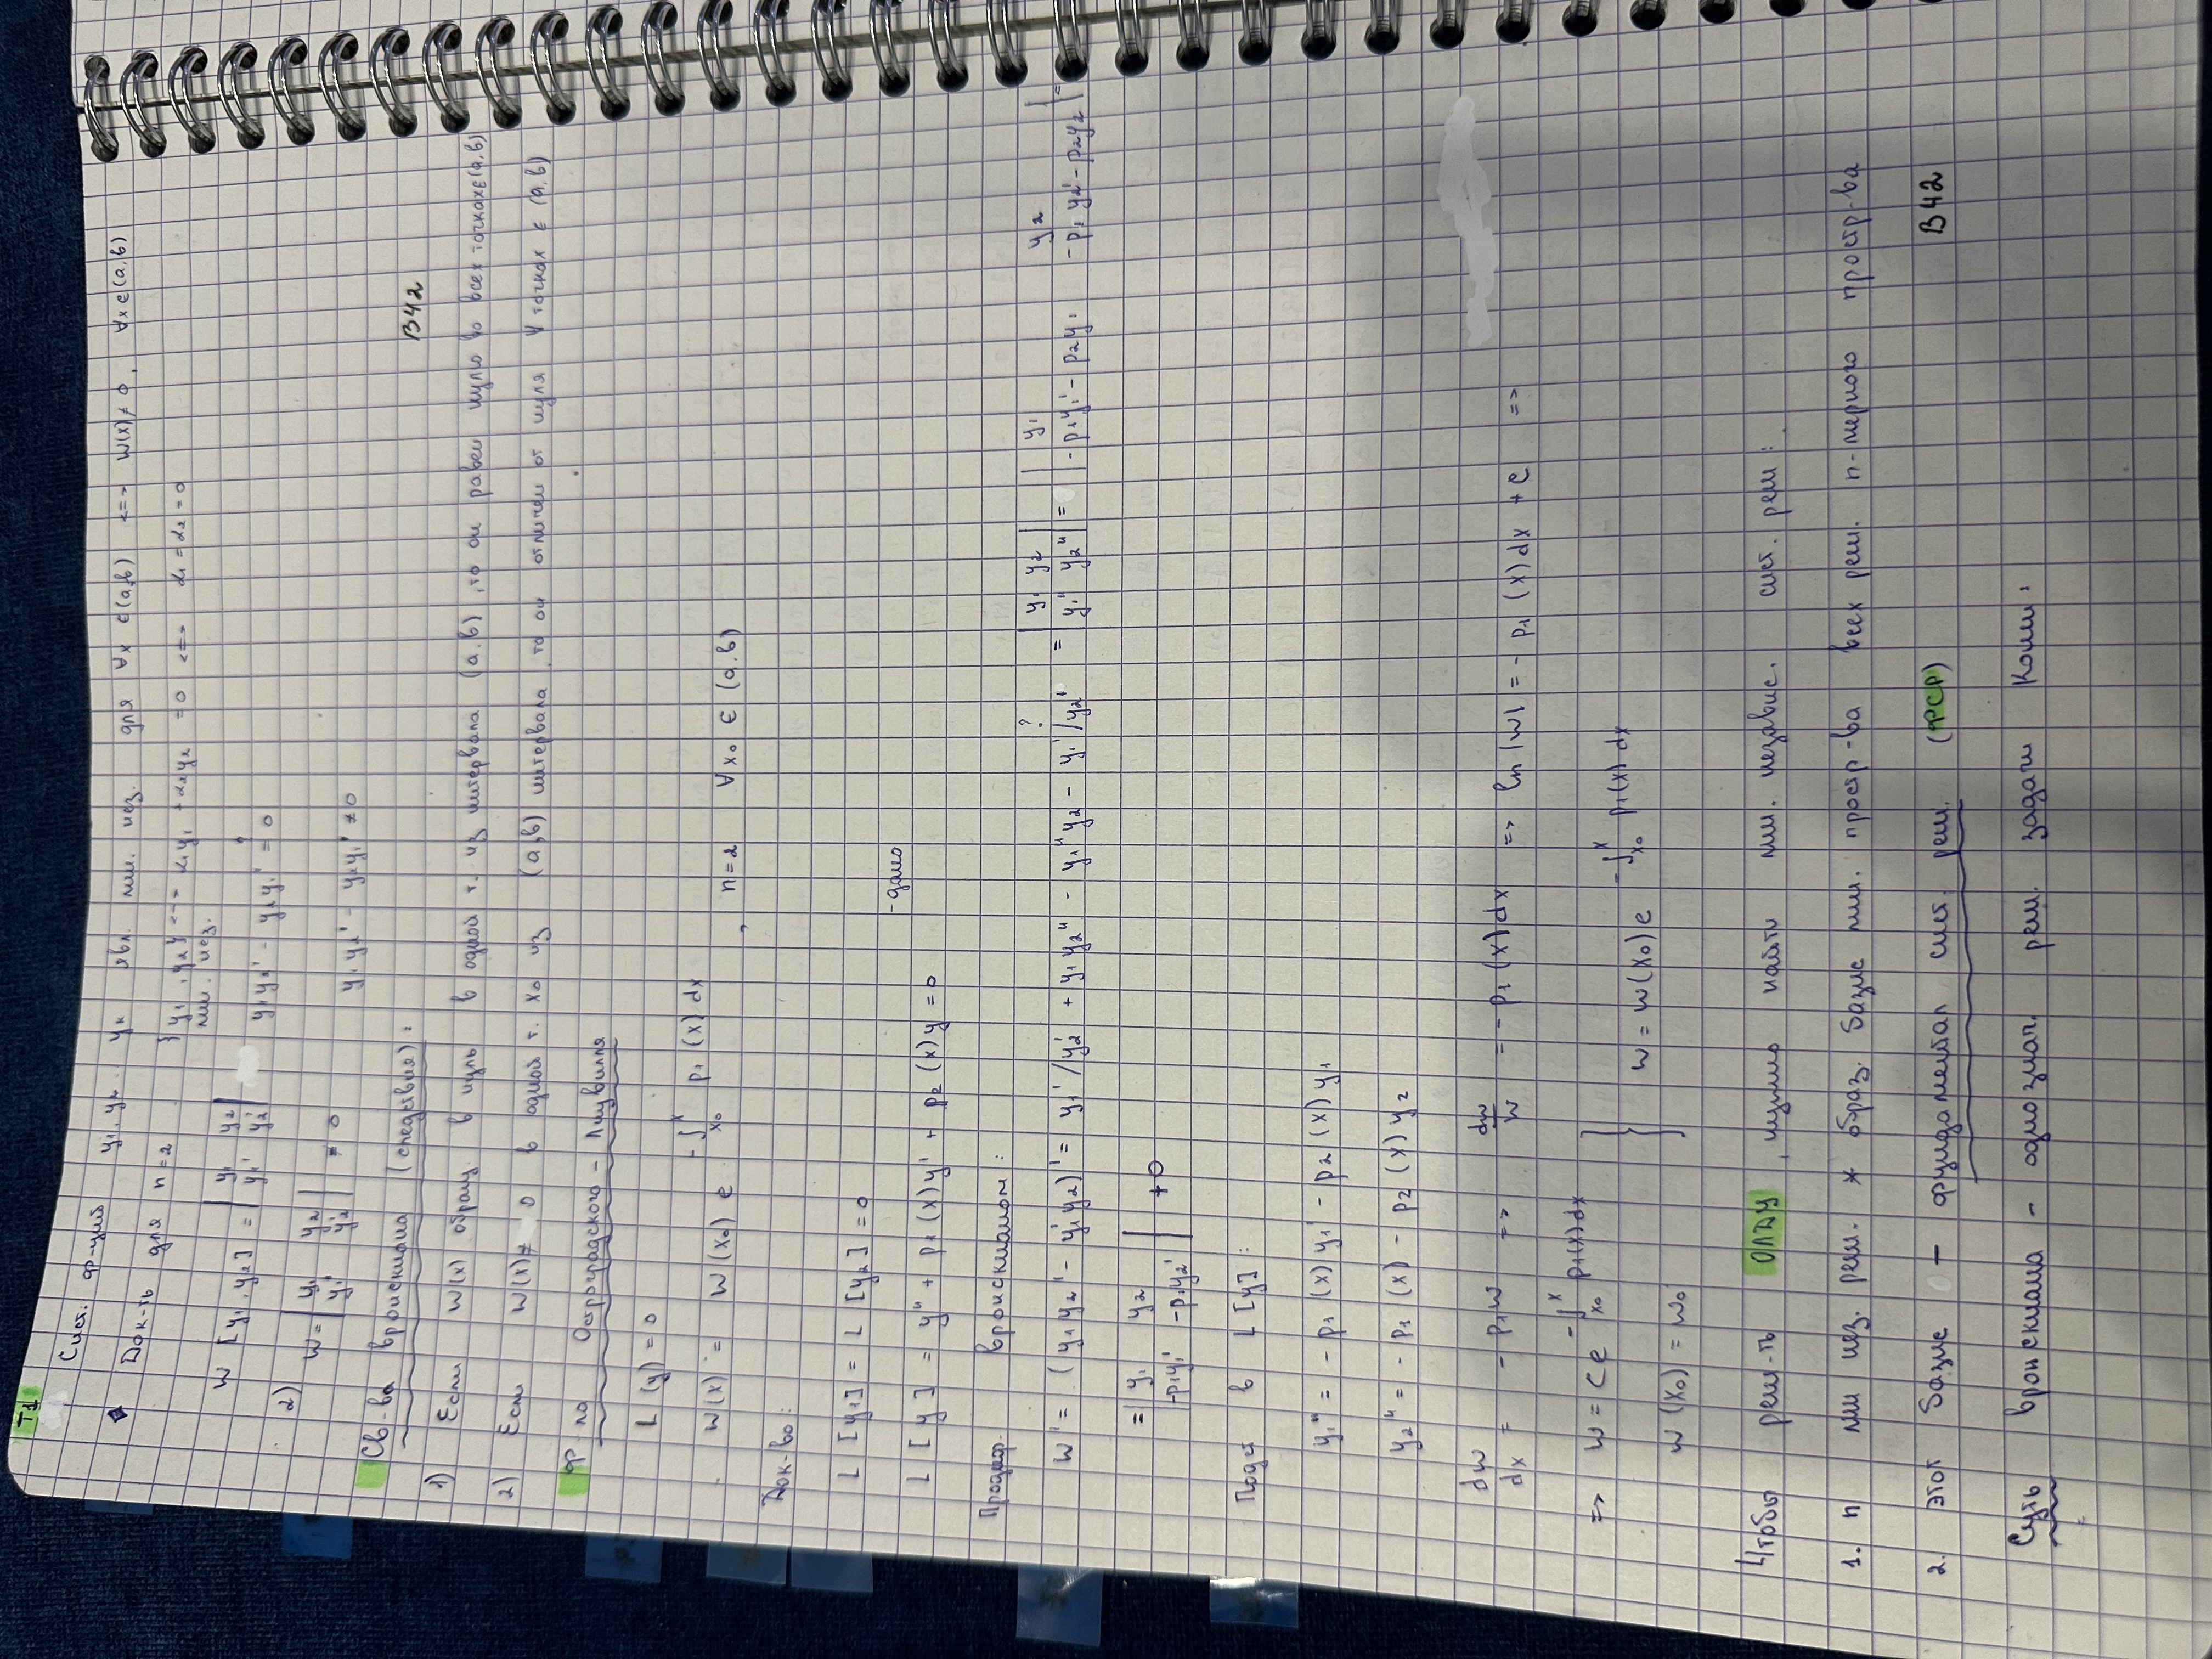 T1
Сист. ф-ций y₁, y₂ .. yₙ явл. лин. нез. для ∀x ∈ (a,b) <=> W(x) ≠ 0, ∀x ∈ (a,b)
Док-ть для n=2 {y₁, y₂} <=> α₁y₁ + α₂y₂ = 0 <=> α₁ = α₂ = 0
лин. нез.
W [y₁, y₂] = | y₁ y₂ | y₁y₂' - y₂y₁' = 0
| y₁' y₂' |
?
2) W = | y₁ y₂ | ≠ 0 y₁y₂' - y₂y₁' ≠ 0
| y₁' y₂' |
Св-ва вронскиана (следствия):
B42
1) Если W(x) обращ. в нуль в одной т. из интервала (a,b), то он равен нулю во всех точках ∈ (a,b)
2) Если W(x) ≠ 0 в одной т. x₀ из (a,b) интервала, то он отличен от нуля ∀ точках ∈ (a,b)
Ф-ла Остроградского - Лиувилля
L (y) = 0
W(x) = W(x₀) e^(-∫_{x₀}^{x} p₁ (x) dx), n=2 ∀x₀ ∈ (a,b)
Док-во:
L [y₁] = L [y₂] = 0
- дано
L [y] = y'' + p₁(x)y' + p₂(x)y = 0
Продиф. вронскианом:
?
W' = (y₁y₂' - y₁'y₂)' = y₁' / y₂' + y₁y₂'' - y₁''y₂ - y₁' / y₂' = | y₁ y₂ | = | y₁ y₂ | =
| y₁'' y₂'' | | -p₁y₁' - p₂y₁ -p₁y₂' - p₂y₂ |
= | y₁ y₂ | + 0
| -p₁y₁' -p₁y₂' |
Подст в L [y]:
y₁'' = - p₁ (x) y₁' - p₂ (x) y₁
y₂'' = - p₁ (x) - p₂ (x) y₂
dw/dx = - p₁w => dw/w = - p₁(x)dx => ln |w| = - p₁ (x)dx + c =>
=> w = c e^(-∫_{x₀}^{x} p₁(x)dx) } w = w(x₀) e^(-∫_{x₀}^{x} p₁(x) dx)
w (x₀) = w₀
Чтобы реш-ть ОЛДУ, нужно найти лин. независ. сист. реш:
1. n лин нез. реш. * образ. базис лин. простр-ва всех реш. n-мерного простр-ва
2. Этот базис - фундаментал сист. реш. (ФСР) B42
Суть вронскиана - однознач. реш. задачи Коши: